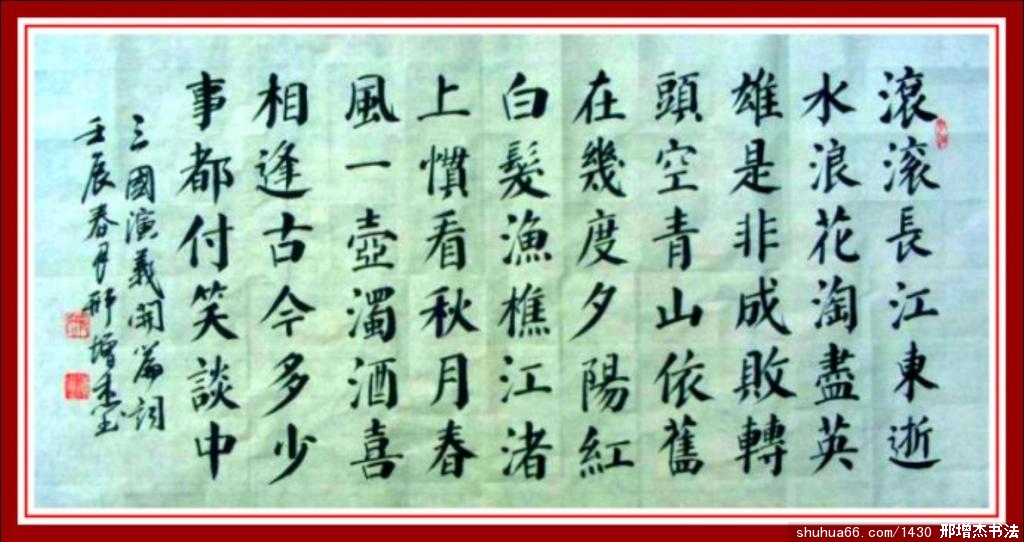 滾滚長江東逝
水浪花淘盡英
雄是非成敗轉
頭空青山依舊
在幾度夕陽紅
白髮漁樵江渚
上慣看秋月春
風一壺濁酒喜
相逢古今多少
事都付笑談中
三國演義開篇詞
壬辰春月邢增杰
shuhua66.com/1430 邢增杰书法